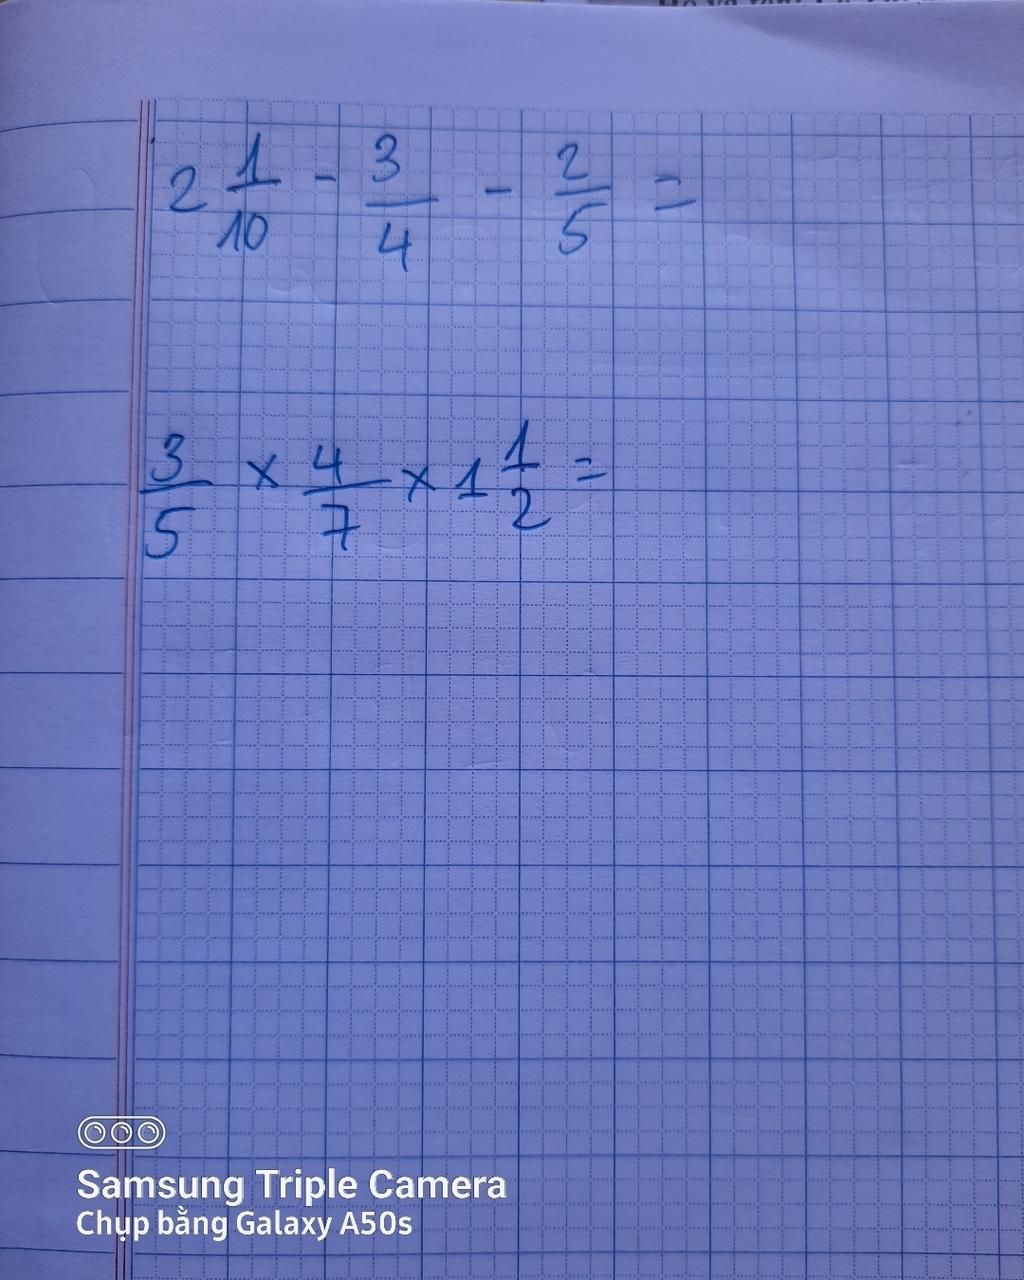 2 1/10 - 3/4 - 2/5 =
3/5 × 4/7 × 1 1/2 =
Samsung Triple Camera
Chụp bằng Galaxy A50s